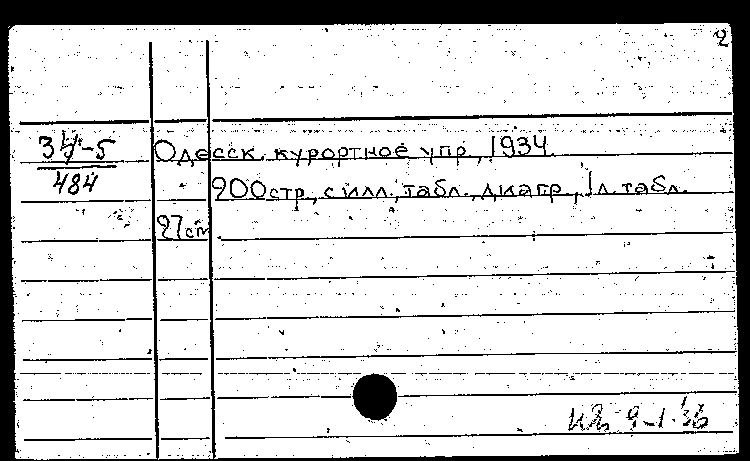 2
34-5
484
Одесск. курортное упр., 1934.
200стр., с илл., табл., диагр., 1 л. табл.
27 cm.
9-1.36